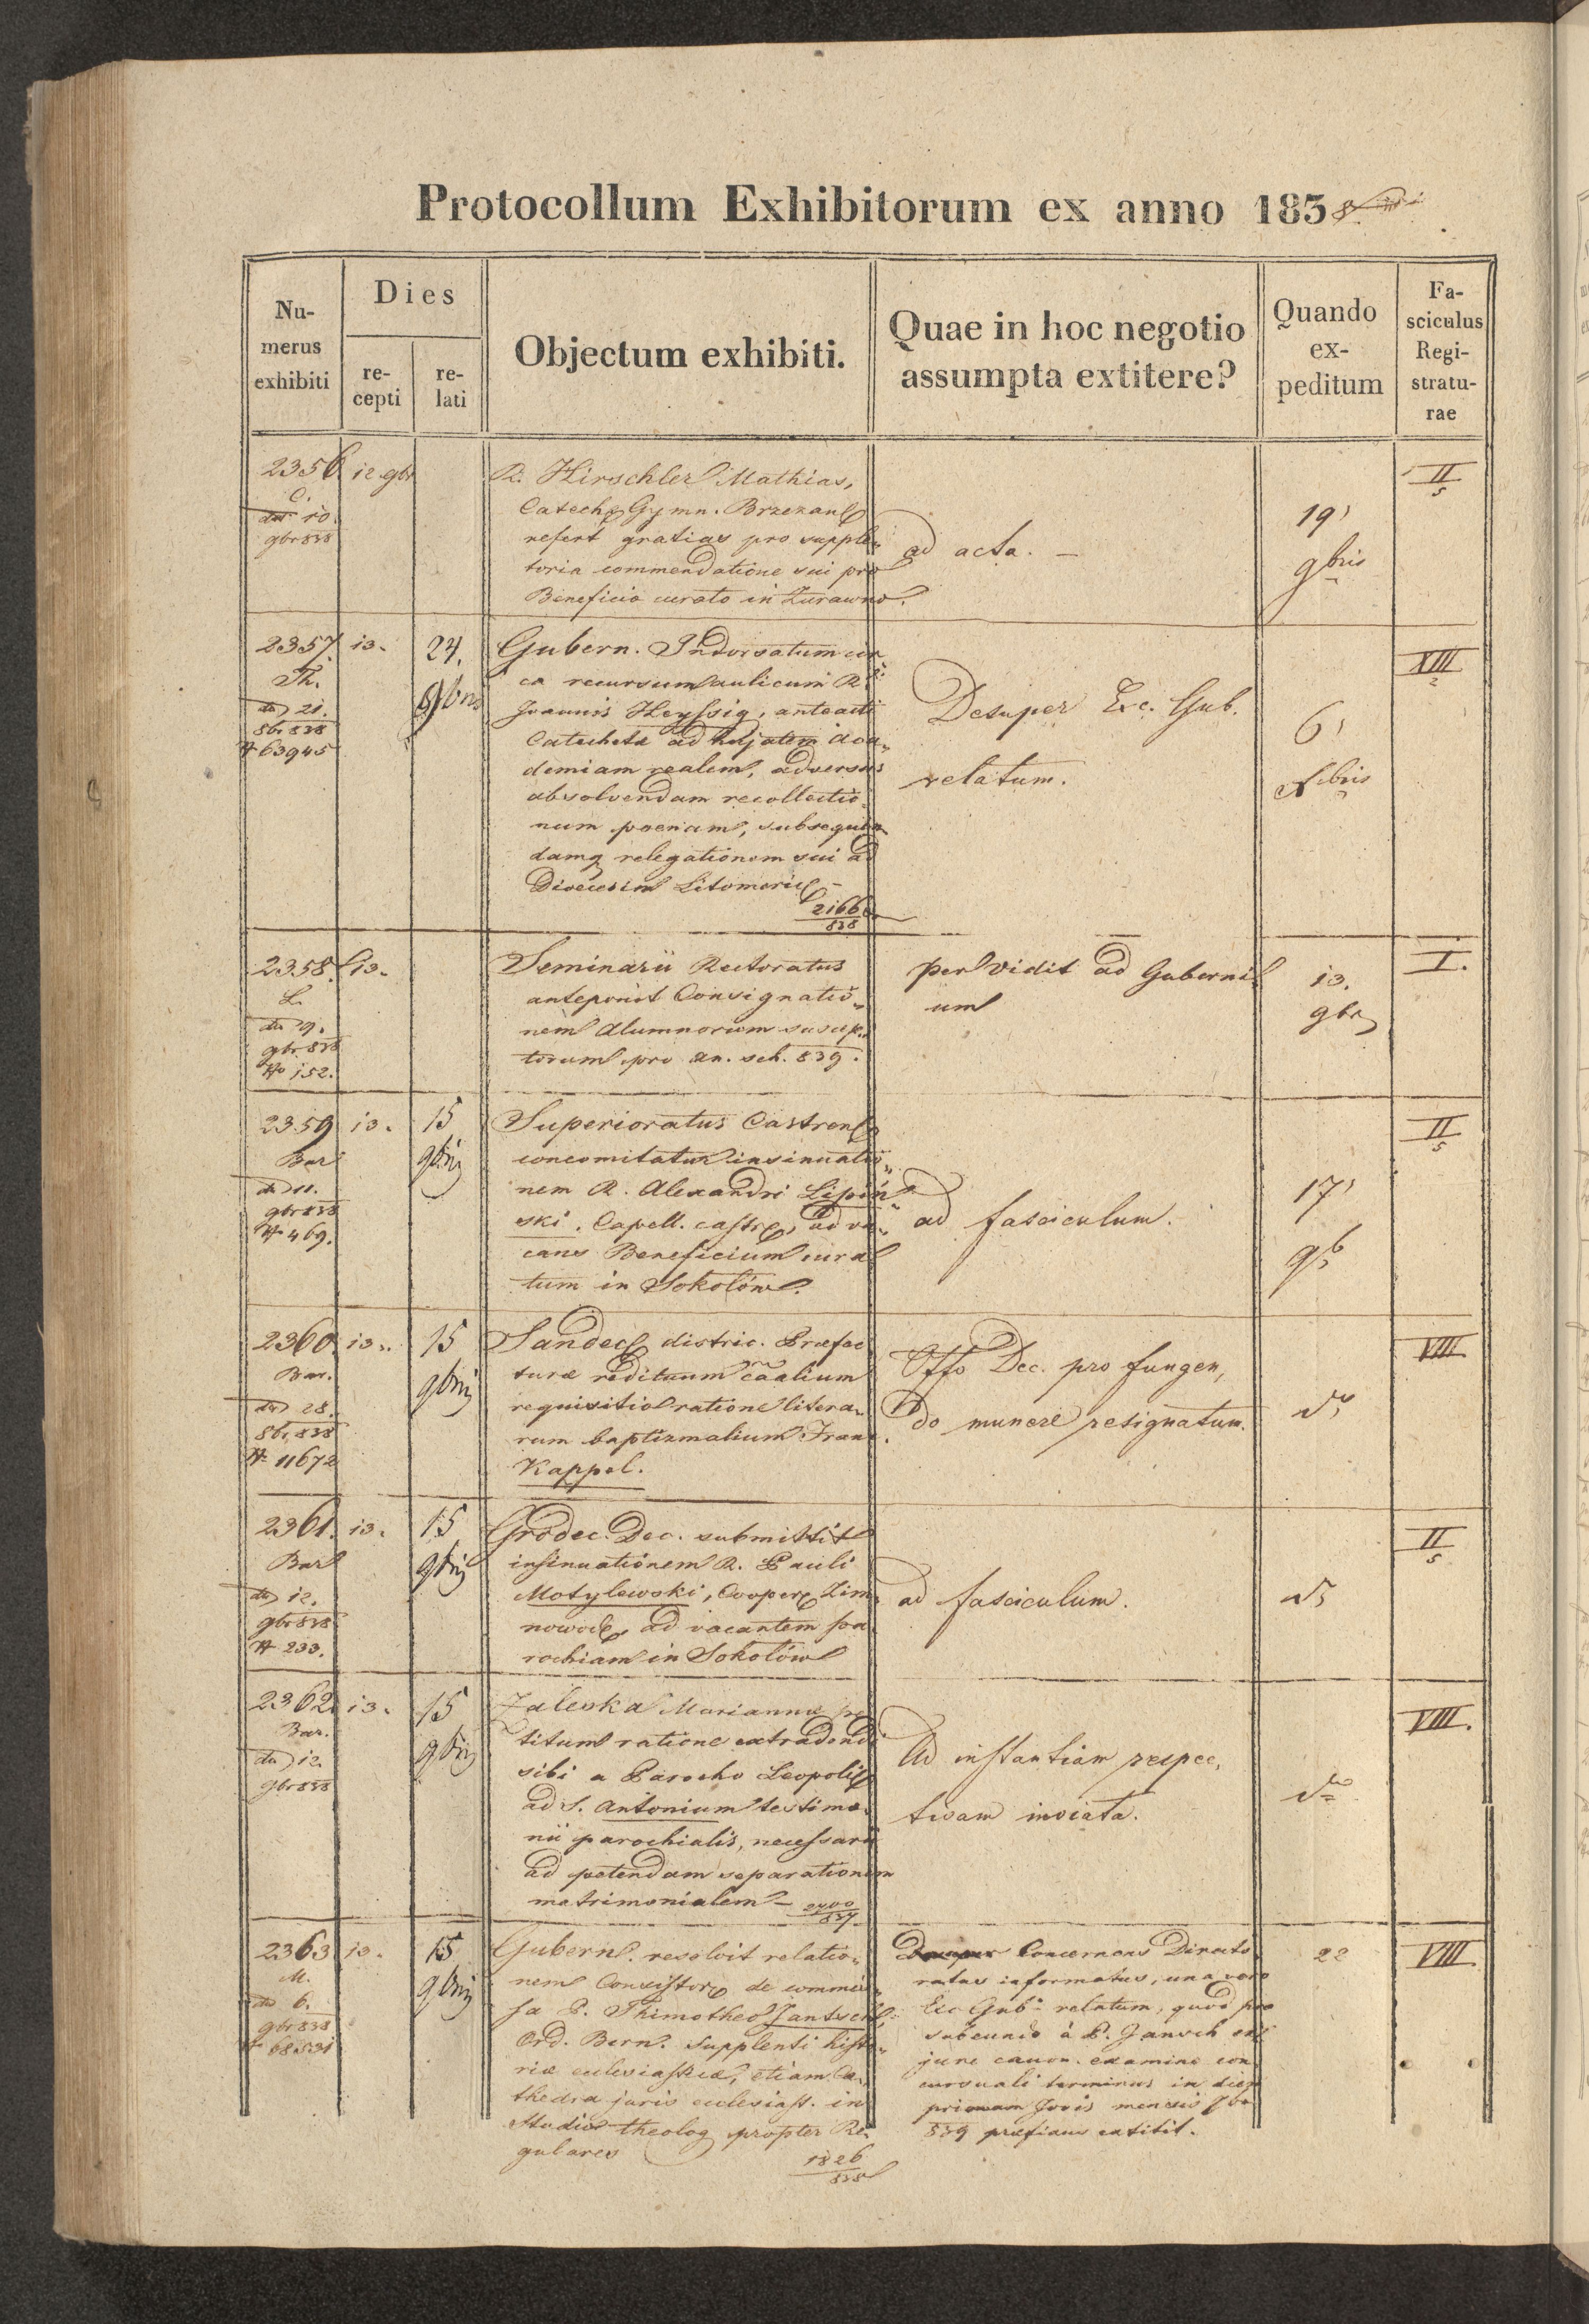 Protocollum Exhibitorum ex anno 1838
Nu-
merus
exhibiti
Dies
re-
cepti
re-
lati
Objectum exhibiti.
Quae in hoc negotio
assumpta extitere?
Quando
ex-
peditum
Fa-
sciculus
Regi-
stratu-
rae
2356 12 9br
C.
ddo 10.
9br 838
R. Hirschler Mathias,
Catech. Gymn. Brzezan.
refert gratias pro supple„
toria commendatione sui pro
Beneficio curato in Zurawno.
ad acta. –
19
9bris
II
5
2357. 13.
Th.
dd 21.
8br 838
N 63945
24.
9bris
Gubern. Indorsatum cir„
ca recursum aulicum R.
Joannis Heyssig, anteacti
Catechetae ad hujatem aca„
demiam realem, adversus
absolvendam recollectio„
num poenam, subsequen
damq relegationem sui ad
Dioecesim Litomeric. –
2166
838
Desuper Exc. Gub.
relatum.
6
Xbris
XIII
2
2358. 13.
L.
dd 9.
9br 838
No 152.
Seminarii Rectoratus
anteponit Consignatio„
nem Alumnorum suscep„
torum pro an. sch. 839.
per vidit ad Guberni„
um
13.
9br
I.
2359 13.
Bar
dd 11.
9br 838
N 469.
15
9bris
Superioratus Castren.
concomitatur insinuatio„
nem R. Alexandri Lipiń„
ski, Capell. castr., ad va„
cans Beneficium cura
tum in Sokołów.
ad fasciculum.
17
9b
II
5
2360 13.
Bar.
dd 28.
8br 838
N 11672
15
9bris
Sandec. distric. Praefec
turae redituum caalium
requisitio ratione litera„
rum baptizmalium Franc.
Kappel.
Offo Dec. pro fungen„
do munere resignatum.
do
VIII
2361. 13.
Bar
dd 12.
9br 838
N 233.
15
9bris
Grodec. Dec. submittit
insinuationem R. Pauli
Motylewski, Cooper. Zim„
nowod. ad vacantem pa
rochiam in Sokołów
ad fasciculum.
do
II
5
2362. 13.
Bar.
dd 12.
9br 838
15
9bris
Zaleska Marianna pe
titum ratione extradendi
sibi a Parocho Leopoli.
ad S. Antonium testimo„
nii parochialis, necessarii
ad petendam separationem
matrimonialem – 2700
837
Ad instantiam respec„
tivam inviata.
do
VIII.
2363 13.
M.
dd 6.
9br 838
N 68531
15
9bris
Gubern. resolvit relatio„
nem Consistor. de commis„
sa P. Thimotheo Jantsch,
Ord. Bern. supplenti histo„
riae ecclesiasticae, etiam Ca„
thedra juris ecclesiast. in
Studio theolog. propter Re„
gulares 1826
838
Concernens Directo
ratus informatus, una vero
Exc Gub. relatum, quod pro
subeundo à P. Jansch ex
jure canon. examine con
cursuali terminus in diem
primam Jovis mensis
839 praefixus extitit.
22
VIII.